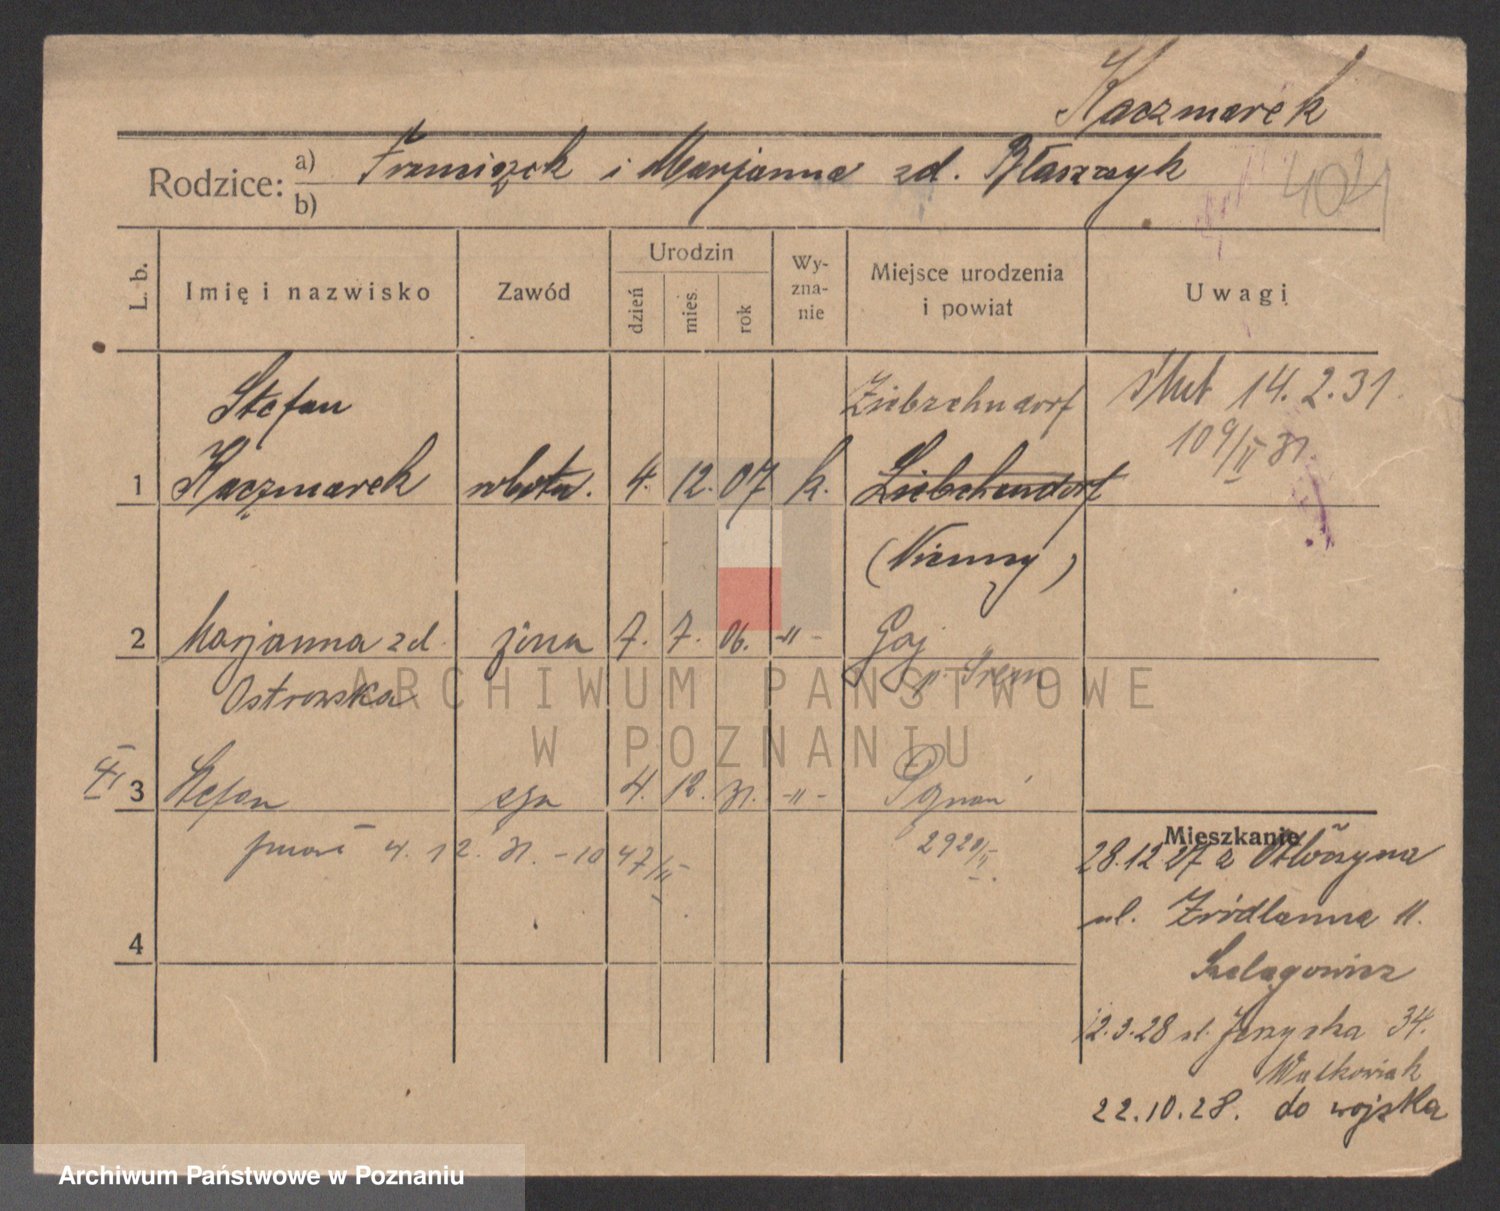 Kaczmarek
Rodzice: a) Franciszek i Marjanna zd. Błaszczyk
b)
404
L. b.
Imię i nazwisko
Zawód
Urodzin
dzień
mies.
rok
Wy-
zna-
nie
Miejsce urodzenia
i powiat
Uwagi
Stefan
Ziebrchndorf
ślub 14.2.31.
109/II 31.
1 Kaczmarek robotn. 4. 12. 07 k. Liebchendorf
(Niemcy)
2 Marjanna zd. żona 7. 7. 06. -"- Gaj
Ostrowska
p. Śrem
ARCHIWUM PAŃSTWOWE
W POZNANIU
3 Stefan syn 4. 12. 31. -"- Poznań
4. 12. 31. - 1047/II
2920/II
4
Mieszkanie
28.12 27 z Obórzyna
ul. Źródlanna 11.
Szelągowicz
12.3.28 ul. Jerzycka 34.
Walkowiak
22.10.28. do wojska
Archiwum Państwowe w Poznaniu